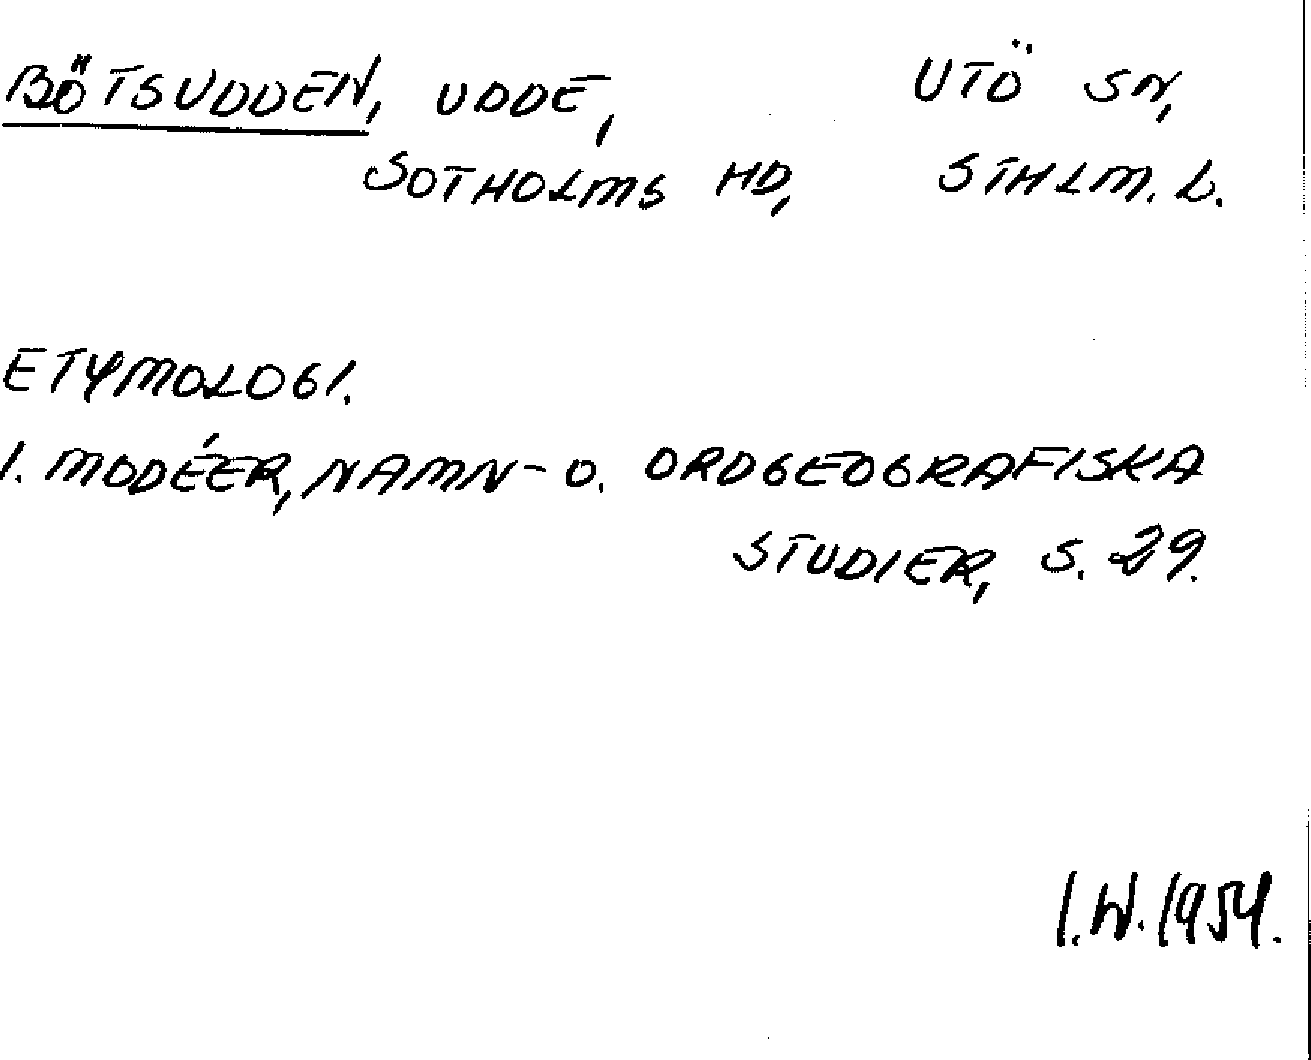 BÖTSUDDEN, UDDE, UTÖ SN,
SOTHOLMS HD, STHLM. L.
ETYMOLOGI.
I. MODÉER, NAMN- O. ORDGEOGRAFISKA
STUDIER, S. 29.
I.W. 1954.